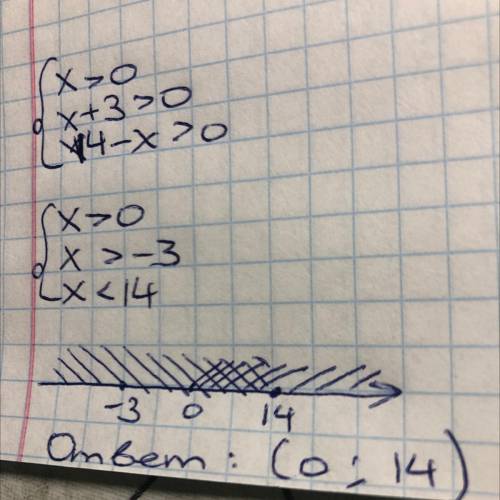 x > 0
x + 3 > 0
14 - x > 0
x > 0
x > -3
x < 14
-3 0 14
Ответ: (0; 14)